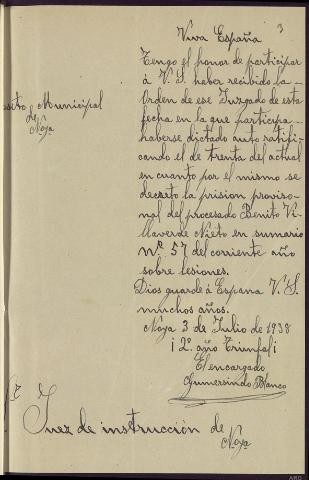 3
Viva España
Tengo el honor de participar
á V. S. haber recibido la
Orden de ese Juzgado de esta
fecha en la que participa
haberse dictado auto ratifi-
cando el de treinta del actual
en cuanto por el mismo se
decretó la prision proviso-
nal del procesado Benito Vi-
llaverde Nieto en sumario
nº 57 del corriente año
sobre lesiones.
Dios guarde á Espana V. S.
muchos años.
Noya 3 de Julio de 1938
¡2º año Triunfal¡
El encargado
Gumersindo Blanco
sito Municipal
de
Noya
Sr
Juez de instrucción de
Noya